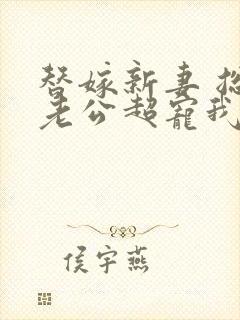 替嫁新妻
老公超宠我
侯宇燕